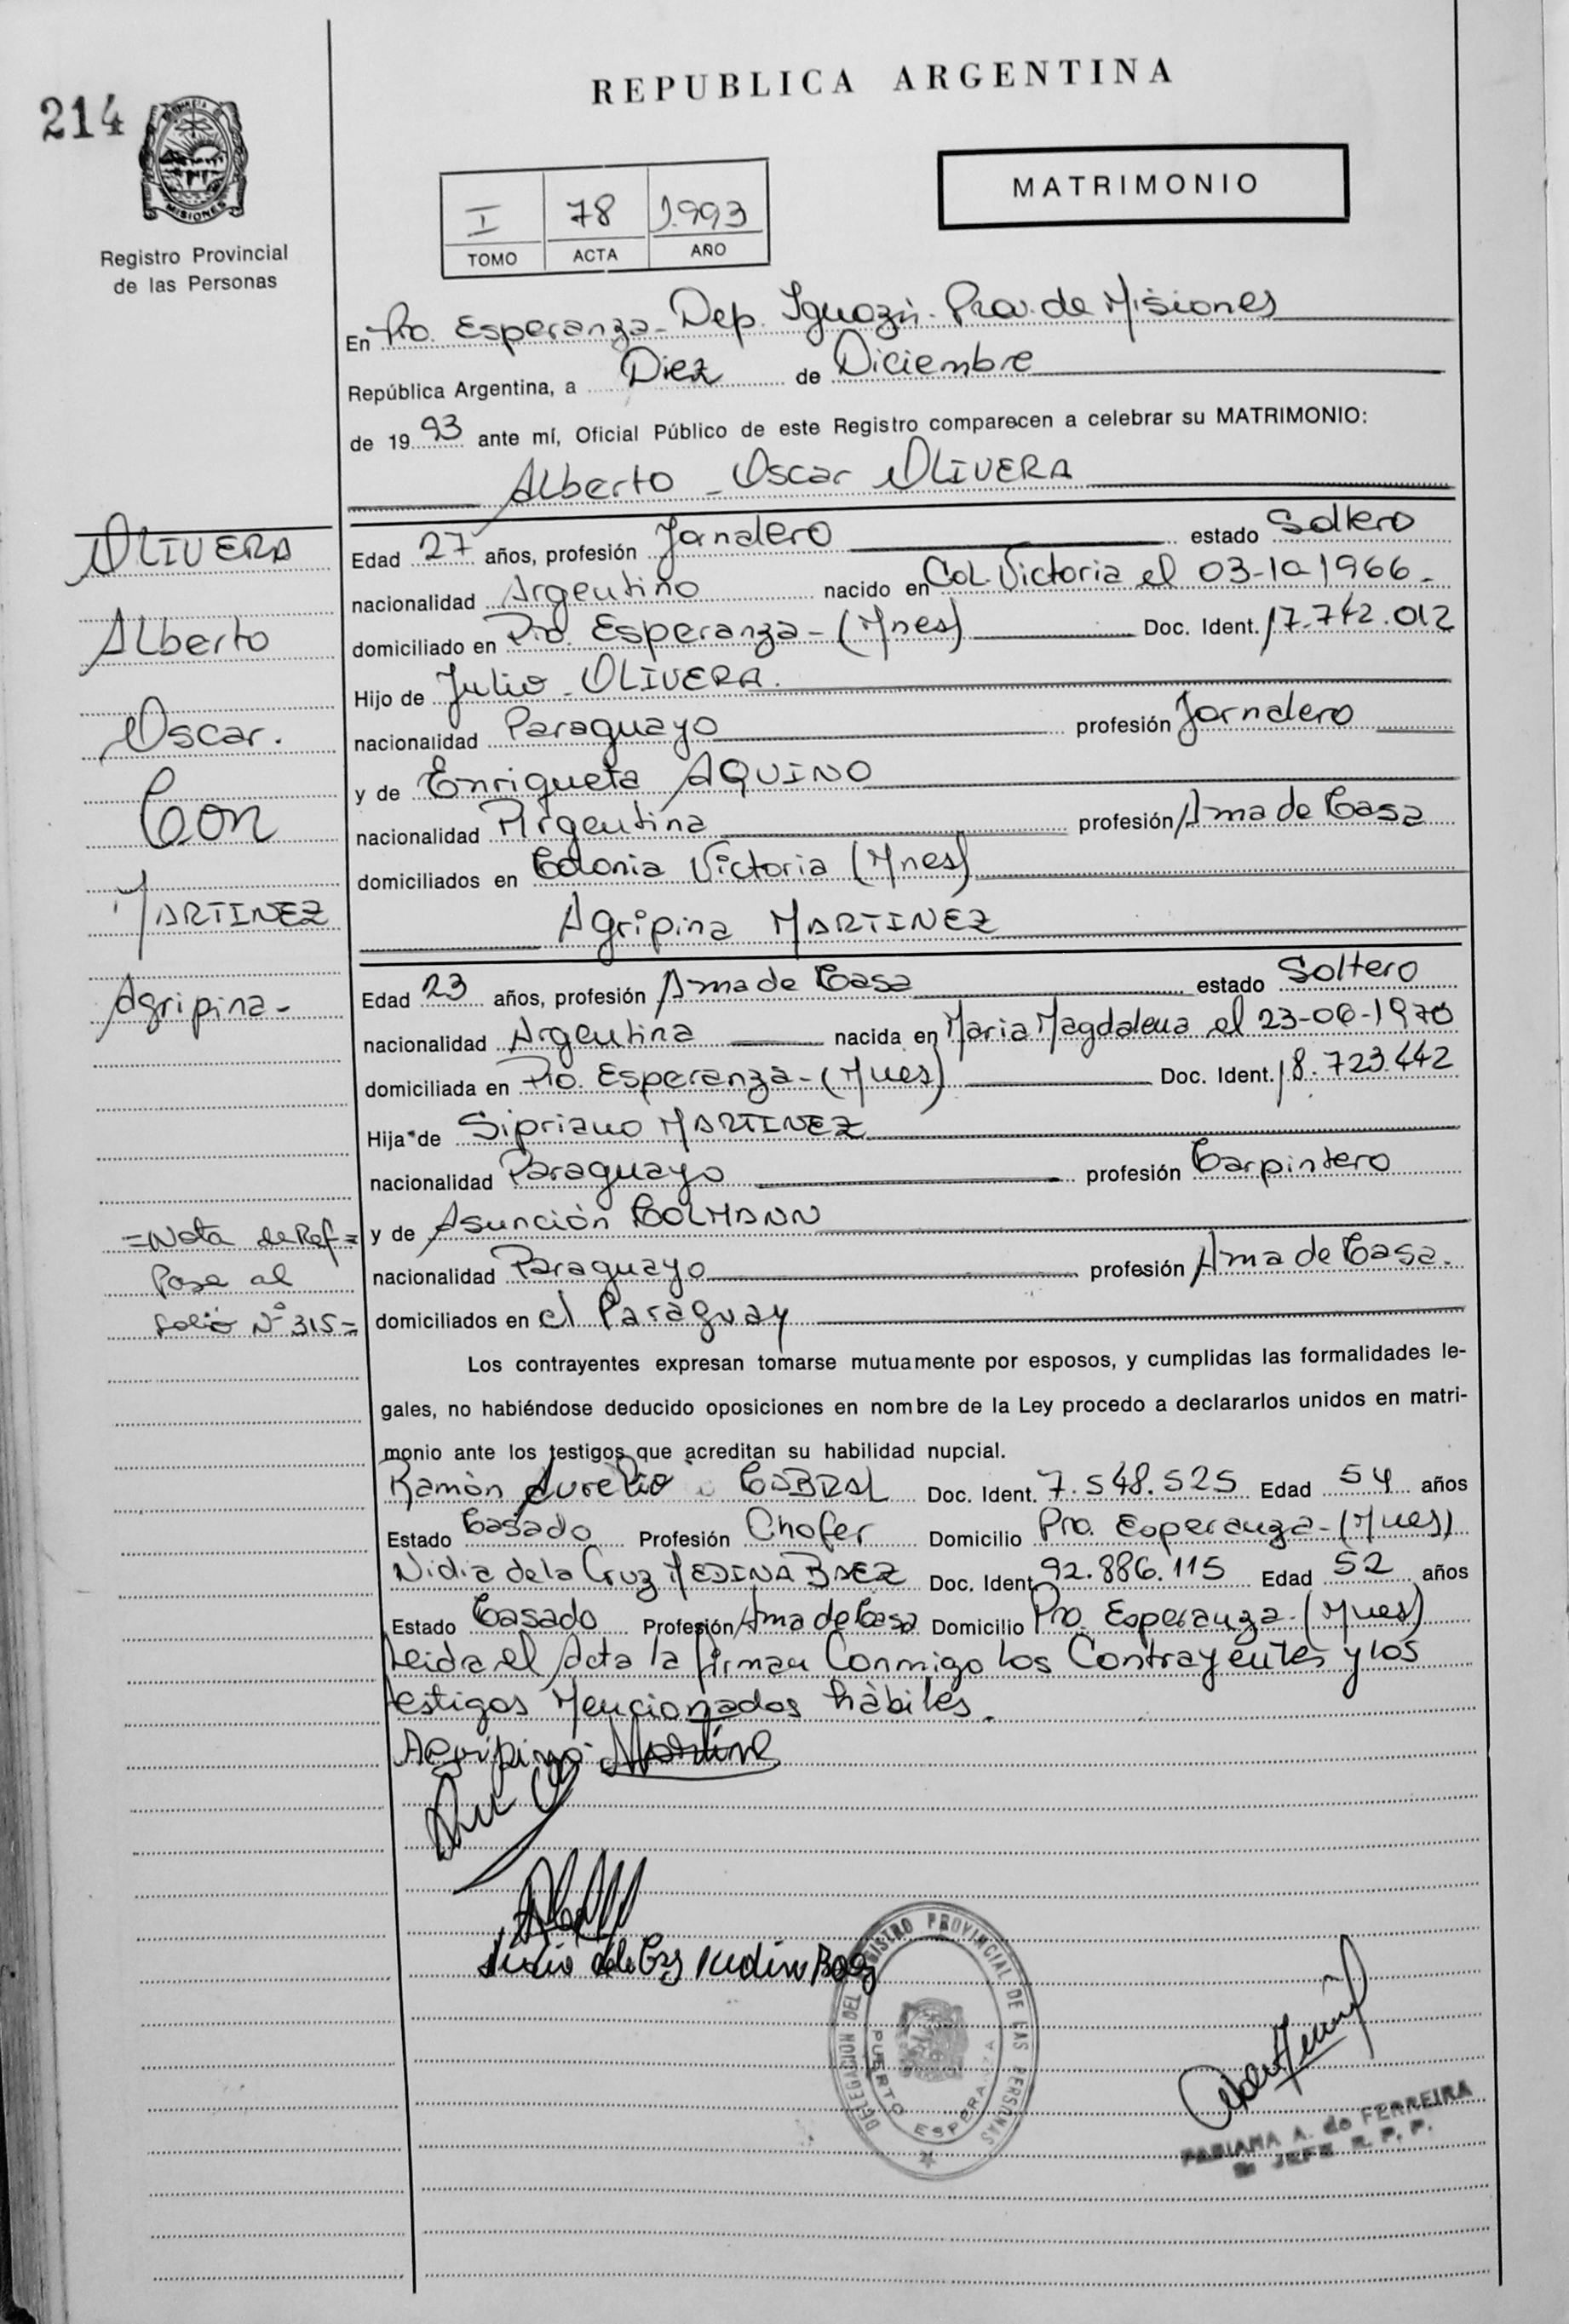 214
MISIONES
Registro Provincial
de las Personas
REPUBLICA ARGENTINA
I 78 1.993
TOMO ACTA AÑO
MATRIMONIO
En Pto. Esperanza - Dep. Iguazú - Prov. de Misiones
República Argentina, a Diez de Diciembre
de 19 93 ante mí, Oficial Público de este Registro comparecen a celebrar su MATRIMONIO:
Alberto - Oscar OLIVERA
Edad 27 años, profesión Jornalero estado Soltero
nacionalidad Argentino nacido en Col. Victoria el 03-10-1966.
domiciliado en Pto. Esperanza - (Mnes) Doc. Ident. 17.742.012
Hijo de Julio - OLIVERA.
nacionalidad Paraguayo profesión Jornalero
y de Enriqueta AQUINO
nacionalidad Argentina profesión Ama de Casa
domiciliados en Colonia Victoria (Mnes)
Agripina MARTINEZ
Edad 23 años, profesión Ama de Casa estado Soltero
nacionalidad Argentina nacida en Maria Magdalena el 23-06-1970
domiciliada en Pto. Esperanza - (Mnes) Doc. Ident. 18.723.442
Hija de Sipriano MARTINEZ
nacionalidad Paraguayo profesión Carpintero
y de Asunción COLMANN
nacionalidad Paraguayo profesión Ama de Casa.
domiciliados en el Paraguay
Los contrayentes expresan tomarse mutuamente por esposos, y cumplidas las formalidades le-
gales, no habiéndose deducido oposiciones en nombre de la Ley procedo a declararlos unidos en matri-
monio ante los testigos que acreditan su habilidad nupcial.
Ramón Aurelio CABRAL Doc. Ident. 7.548.525 Edad 54 años
Estado Casado Profesión Chofer Domicilio Pto. Esperanza - (Mnes)
Nidia de la Cruz MEDINA BAEZ Doc. Ident. 92.886.115 Edad 52 años
Estado Casado Profesión Ama de Casa Domicilio Pto. Esperanza - (Mnes)
Leida el Acta la firman Conmigo los Contrayentes y los
testigos Mencionados hábiles.
Agripina Martine
OLIVERA
Alberto
Oscar.
Con
MARTINEZ
Agripina -
= Nota de Ref =
Pasa al
folio Nº 315 =
DELEGACION DEL REGISTRO PROVINCIAL DE LAS PERSONAS
PUERTO ESPERANZA
FABIANA A. de FERREIRA
JEFE R. P. P.